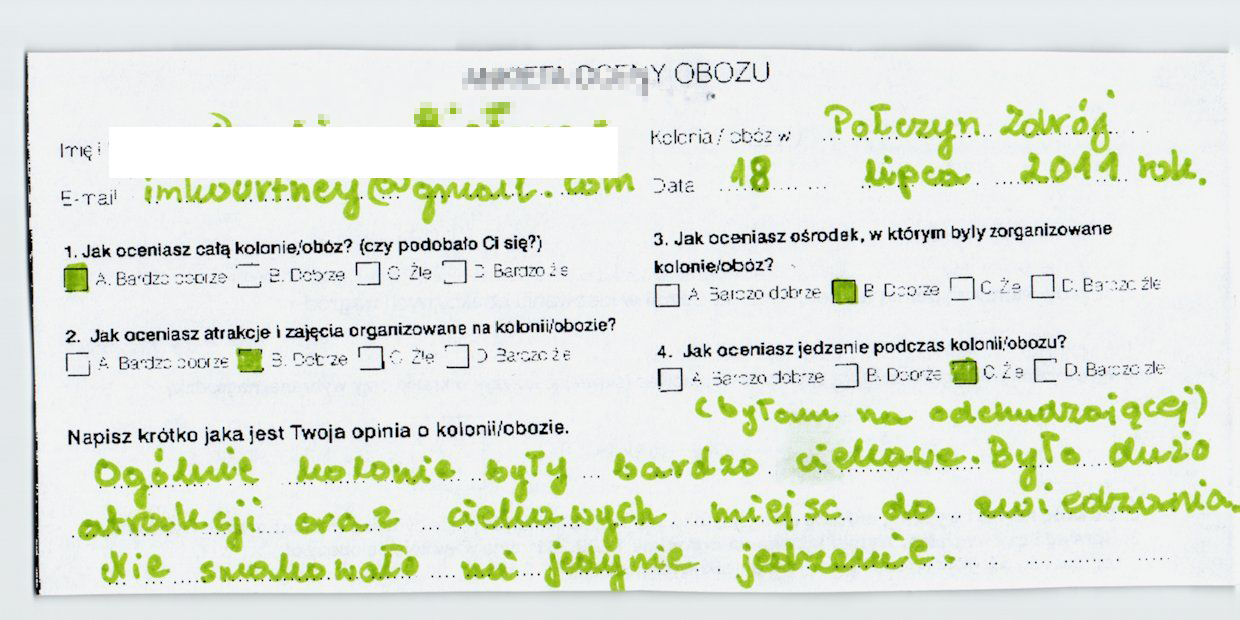 ANKIETA OCENY OBOZU
Imię i
Kolonia / obóz w Połczyn Zdrój
E-mail imkourtney@gmail.com
Data 18 lipca 2011 rok.
1. Jak oceniasz całą kolonie/obóz? (czy podobało Ci się?)
A. Bardzo dobrze B. Dobrze C. Źle D. Bardzo źle
2. Jak oceniasz atrakcje i zajęcia organizowane na kolonii/obozie?
A. Bardzo dobrze B. Dobrze C. Źle D. Bardzo źle
3. Jak oceniasz ośrodek, w którym były zorganizowane
kolonie/obóz?
A. Bardzo dobrze B. Dobrze C. Źle D. Bardzo źle
4. Jak oceniasz jedzenie podczas kolonii/obozu?
A. Bardzo dobrze B. Dobrze C. Źle D. Bardzo źle
(byłam na odchudzającej)
Napisz krótko jaka jest Twoja opinia o kolonii/obozie.
Ogólnie kolonie były bardzo ciekawe. Było dużo
atrakcji oraz ciekawych miejsc do zwiedzania.
Nie smakowało mi jedynie jedzenie.